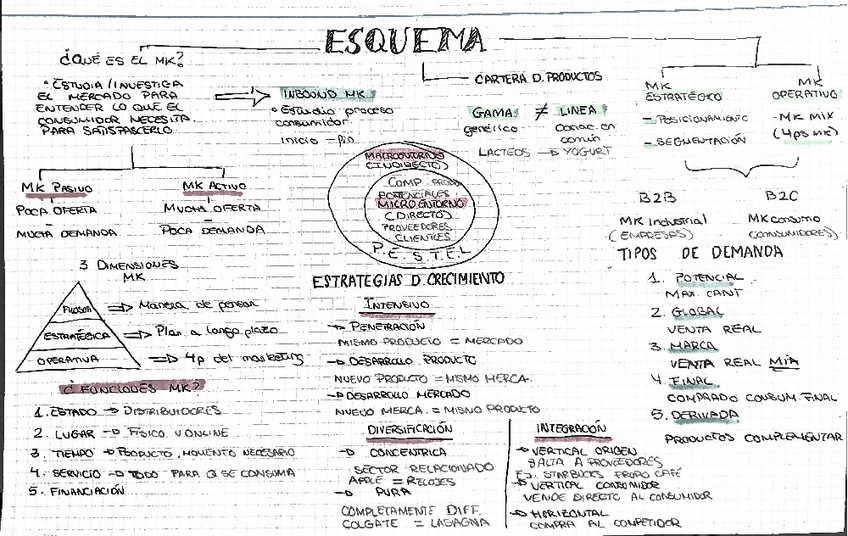 ESQUEMA
¿QUÉ ES EL MK?
• ESTUDIA/INVESTIGA
EL MERCADO PARA
ENTENDER LO QUE EL
CONSUMIDOR NECESITA
PARA SATISFACERLO
INBOUND MK.
• Estudio proceso
consumidor
inicio - fin
MK PASIVO
POCA OFERTA
MUCHA DEMANDA
MK ACTIVO
MUCHA OFERTA
POCA DEMANDA
CARTERA D. PRODUCTOS
GAMA ≠ LINEA
genérico
común
LACTEOS → YOGURT
MK
ESTRATÉGICO
- POSICIONAMIENTO
- SEGMENTACIÓN
MK
OPERATIVO
- MK MIX
(4ps MK)
B2B
MK industrial
(EMPRESAS)
B2C
MK consumo
(CONSUMIDORES)
MACROENTORNO
(INDIRECTO)
POTENCIALES
MICROENTORNO
(DIRECTO)
PROVEEDORES
CLIENTES
P.E.S.T.E.L
3 DIMENSIONES
MK
FILOSOF. ⇒ Manera de pensar
ESTRATÉGICA ⇒ Plan. a largo plazo
OPERATIVA ⇒ 4p del marketing
¿FUNCIONES MK?
1. ESTADO → DISTRIBUIDORES
2. LUGAR → FÍSICO Y ONLINE
3. TIEMPO → PRODUCTO, MOMENTO NECESARIO
4. SERVICIO → TODO PARA Q SE CONSUMA
5. FINANCIACIÓN
ESTRATEGIAS D. CRECIMIENTO
INTENSIVO
→ PENETRACIÓN
MISMO PRODUCTO = MERCADO
→ DESARROLLO PRODUCTO
NUEVO PRODUCTO = MISMO MERCA.
→ DESARROLLO MERCADO
NUEVO MERCA. = MISMO PRODUCTO
DIVERSIFICACIÓN
→ CONCENTRICA
SECTOR RELACIONADO
APPLE = RELOJES
→ PURA
COMPLETAMENTE DIFF.
COLGATE = LASAGNA
INTEGRACIÓN
→ VERTICAL ORIGEN
SALTA A PROVEEDORES
EJ. STARBUCKS PROPO CAFÉ
→ VERTICAL CONSUMIDOR
VENDE DIRECTO AL CONSUMIDOR
→ HORIZONTAL
COMPRA AL COMPETIDOR
TIPOS DE DEMANDA
1. POTENCIAL
MAX. CANT
2. GLOBAL
VENTA REAL
3. MARCA
VENTA REAL MÍA
4. FINAL
COMPRADO CONSUM. FINAL
5. DERIVADA
PRODUCTOS COMPLEMENTAR